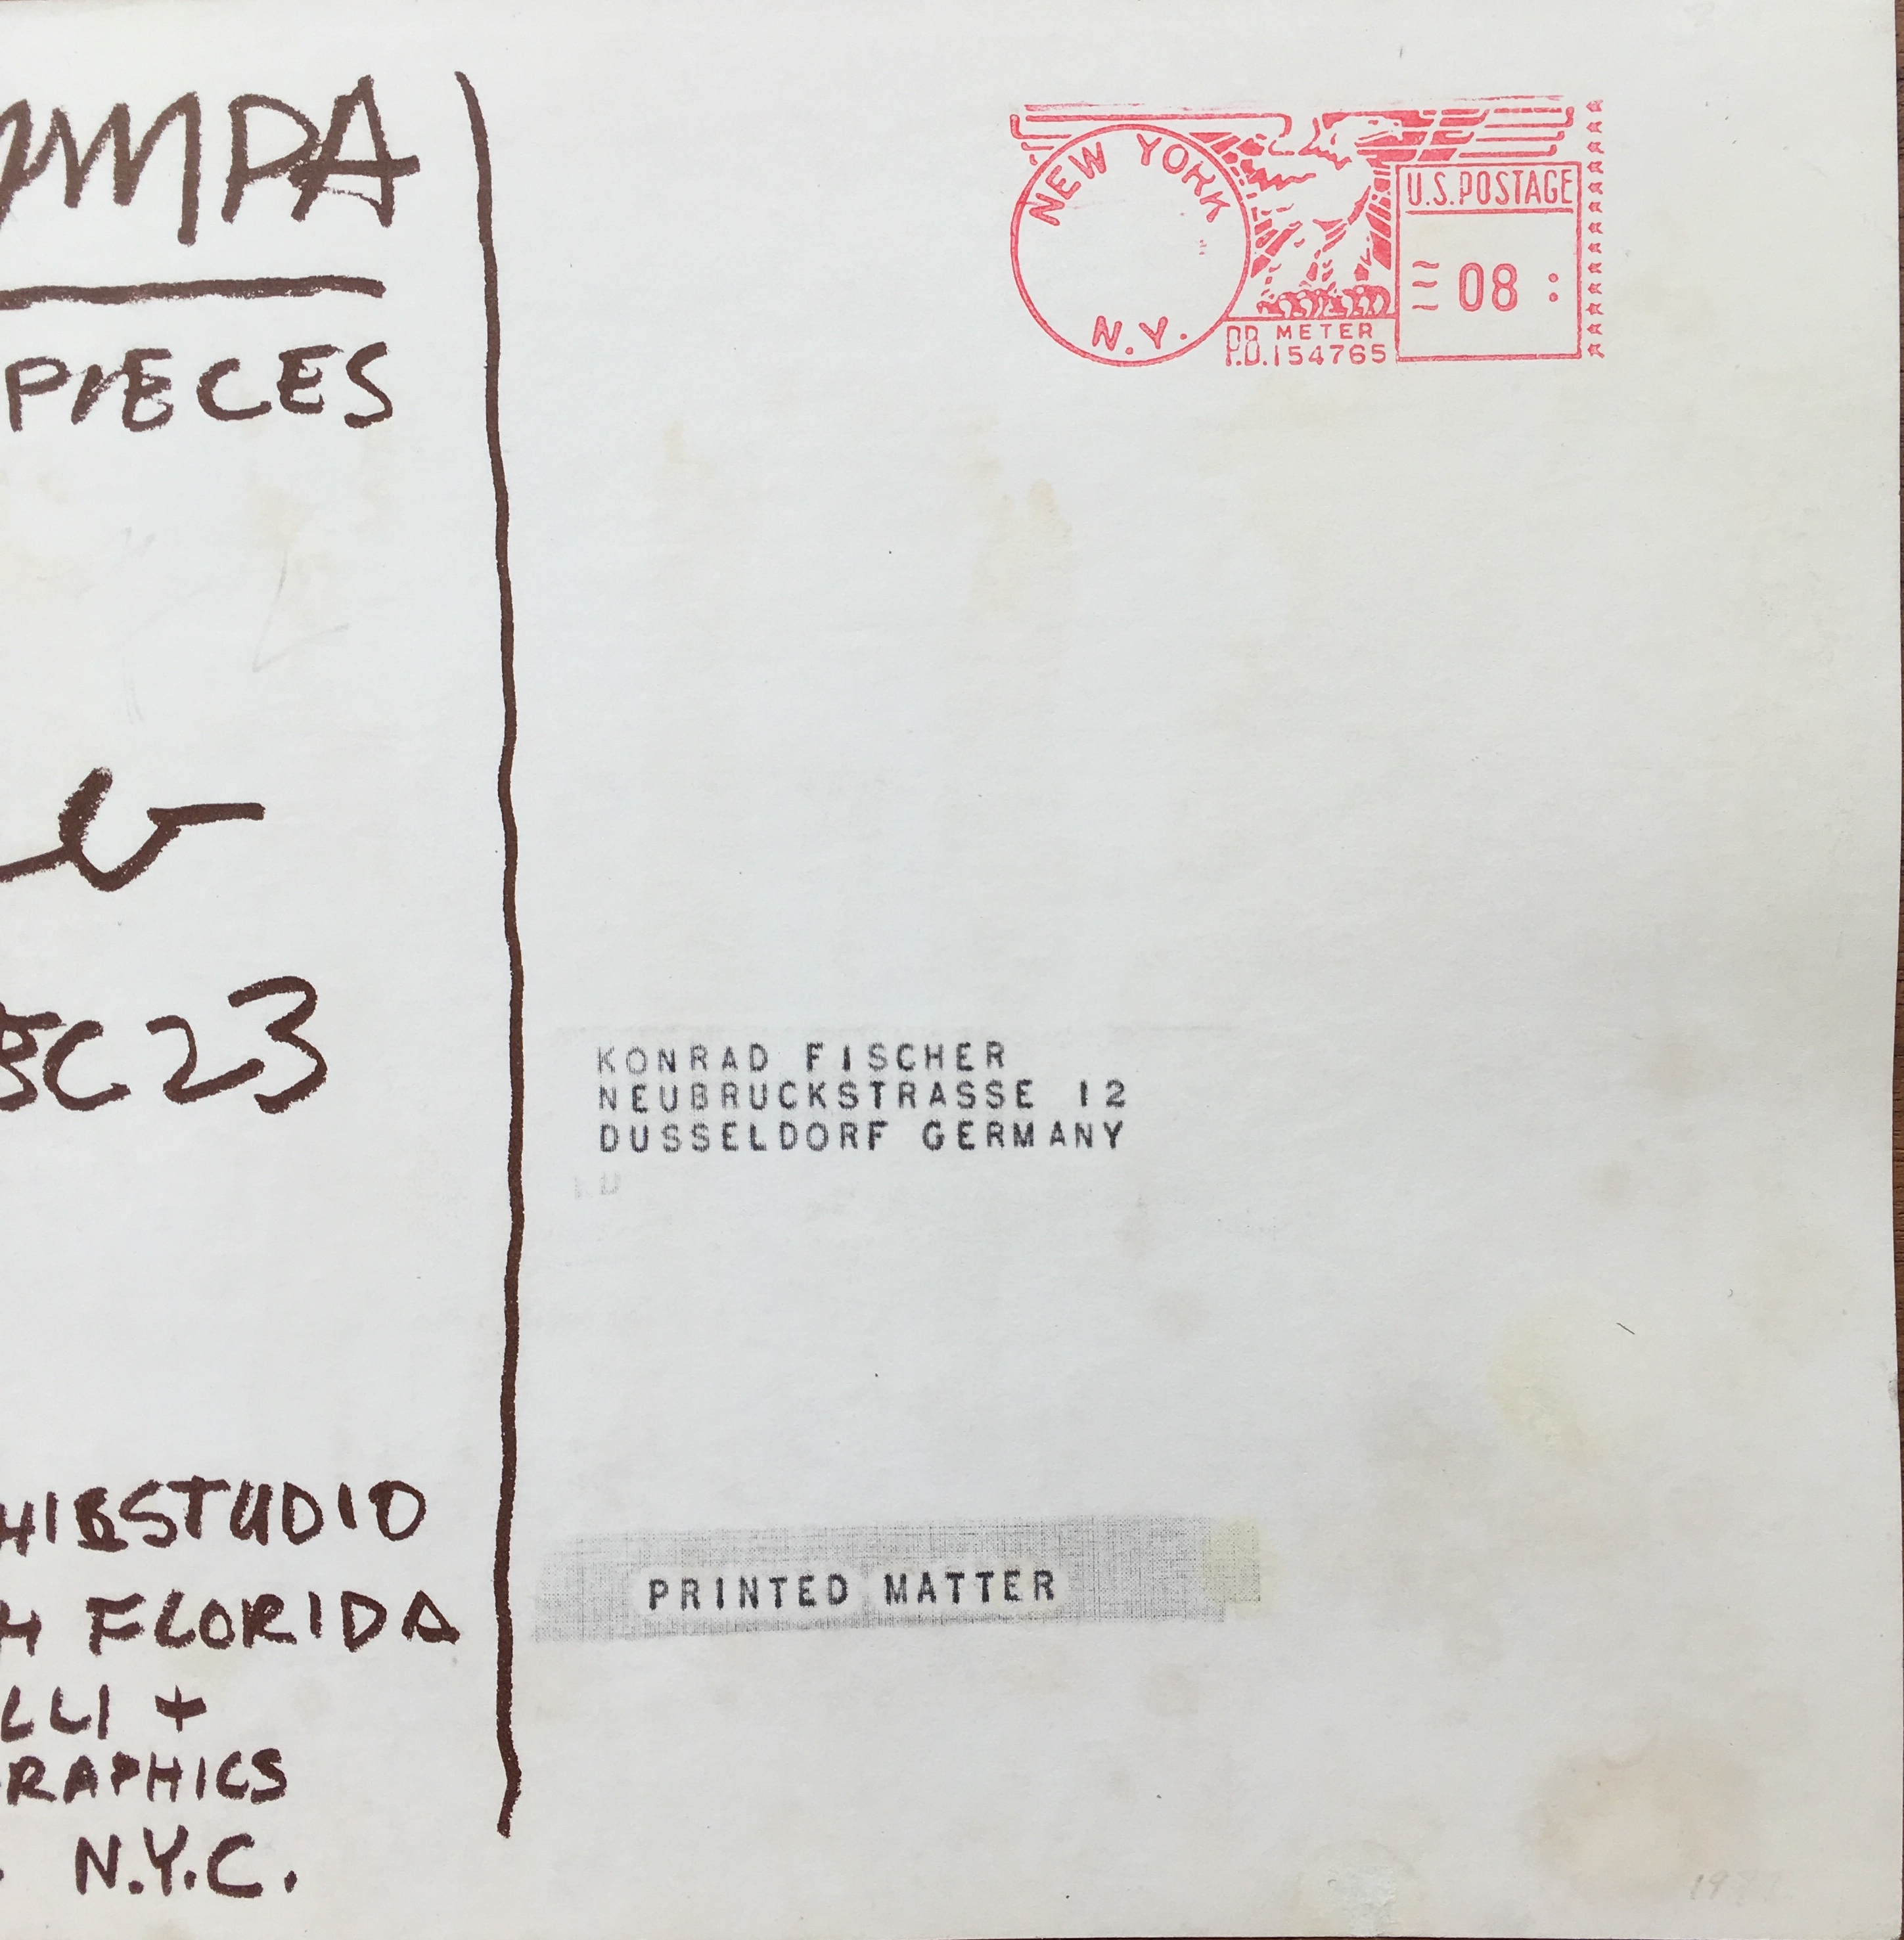 AMPA
PIECES
DEC 23
HIBSTUDIO
H FLORIDA
LLI +
RAPHICS
N.Y.C.
NEW YORK
N.Y.
U.S. POSTAGE
08
P.B. METER
154765
KONRAD FISCHER
NEUBRUCKSTRASSE 12
DUSSELDORF GERMANY
PRINTED MATTER